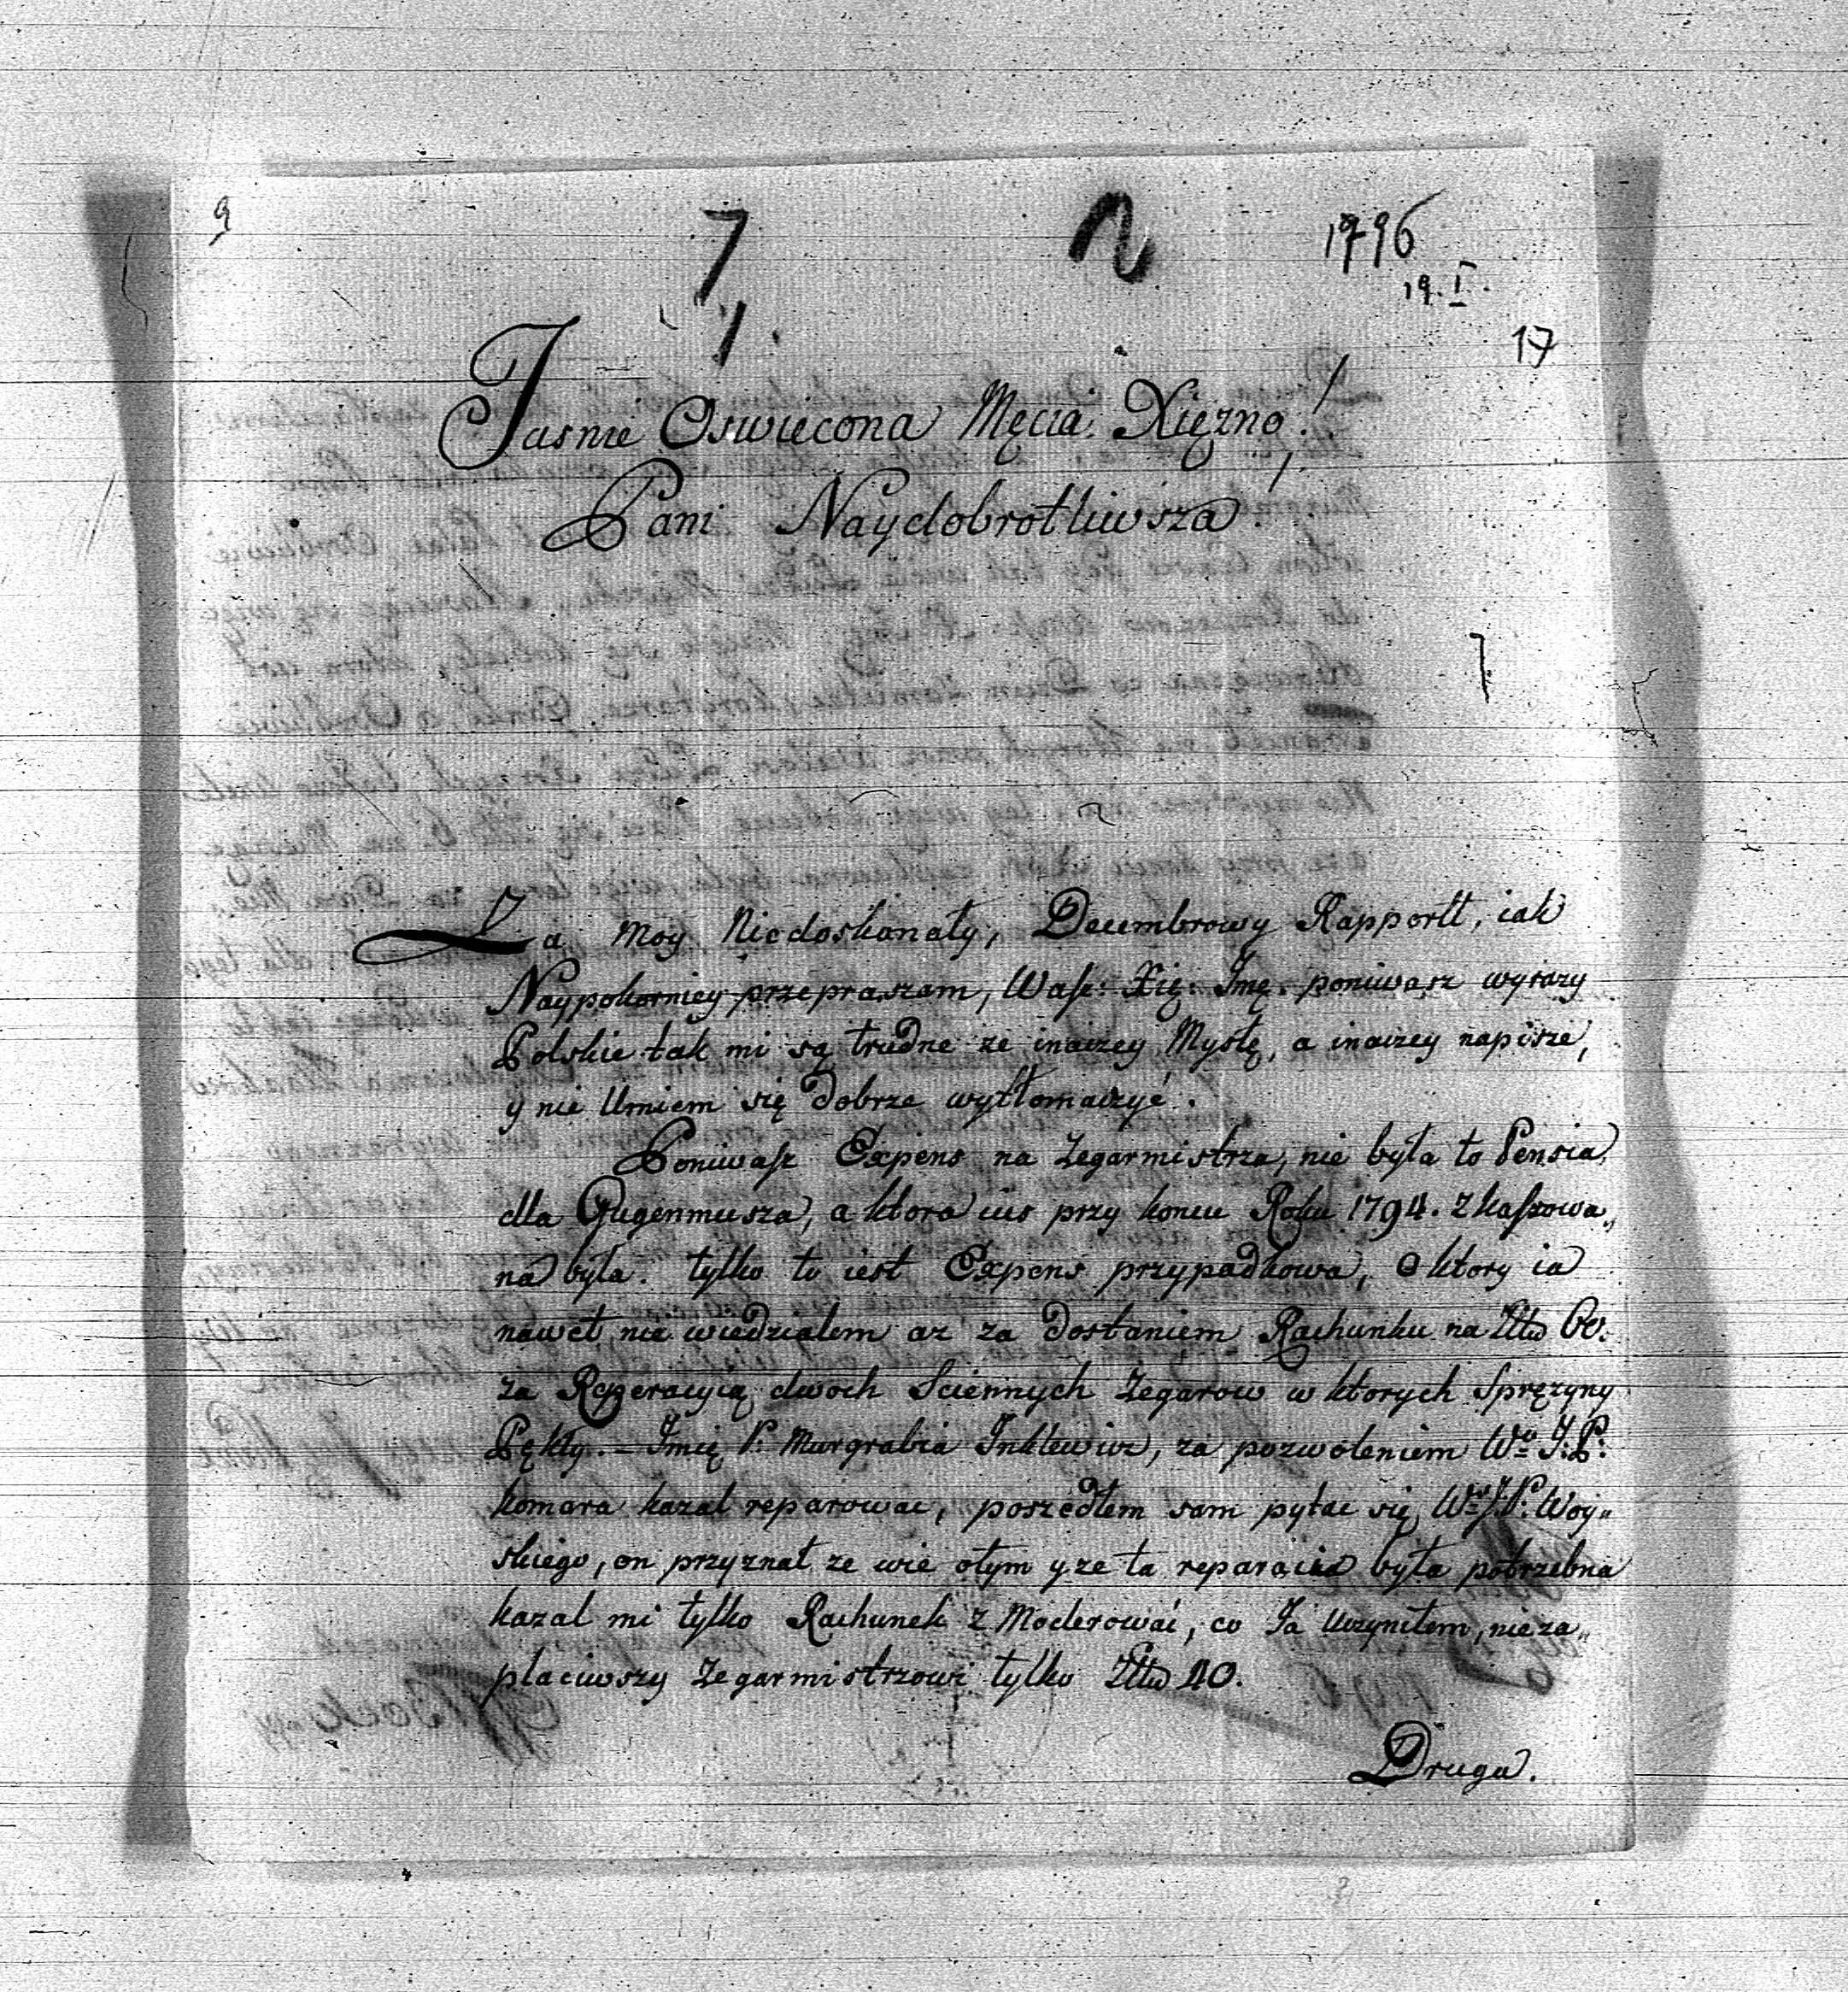 9
7
2
1796
19. I.
1.
17
Jasnie Oswiecona Męcia: Xięzno!
Pani Naydobrotliwsza!
Za moy Niedoskonały, Decembrowy Rapportt, iak
Naypokorniey przepraszam, Wasz: Xię: Jmę. poniwasz wyrazy
Polskie tak mi są trudne ze inaizey Mysłę, a inaizey napisze,
y nie Umiem się dobrze wytłomaizyć.
Poniwasz Expens na Zegarmistrza, nie była to Pensia
dla Gugenmusza, a ktora ius przy koncu Roku 1794. z kaszowa„
na była. tylko to iest Expens przypadkowa, o ktory ia
nawet nie wiedzialem az za dostaniem Rachunku na Złłw 60.
za Reperacyią dwoch Sciennych Zegarow w ktorych Spręzyny
Pękły. – Jmię P: Murgrabia Inklewicz, za pozwoleniem Wo J: P:
Komara kazal reparowac, poszedłem sam pytac się Wo J: P: Woy„
skiego, on przyznał ze wie otym y ze ta reparacia była potrzebna
kazal mi tylko Rachunek z Moderować, co Ja Uczyniłem, nie za„
placiwszy Zegarmistrzowi tylko Złłw 40.
Druga.